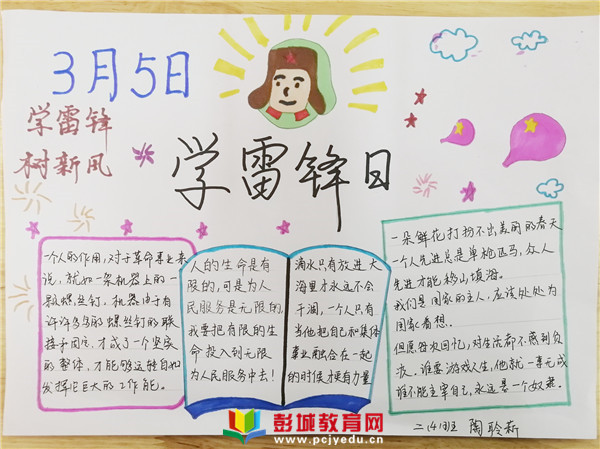 3月5日
学雷锋
树新风
学雷锋日
一个人的作用,对于革命事业来
说,就如一架机器上的一
颗螺丝钉,机器由于有
许许多多的螺丝钉的联
接和固定,才成了一个坚实
的整体,才能够运转自如
发挥它巨大的工作能。
人的生命是有
限的,可是为人
民服务是无限的,
我要把有限的生
命投入到无限
为人民服务中去!
滴水只有放进大
海里才永远不会
干涸,一个人只有
当他把自己和集体
事业融合在一起
的时候才最有力量
一朵鲜花打扮不出美丽的春天
一个人先进总是单枪匹马,众人
先进才能移山填海。
我们是国家的主人,应该处处为
国家着想.
但愿每次回忆,对生活都不感到负
疚。谁要游戏人生,他就一事无成
谁不能主宰自己,永远是一个奴隶。
二(4)班 陶聆新
彭城教育网
www.pcjyedu.cn